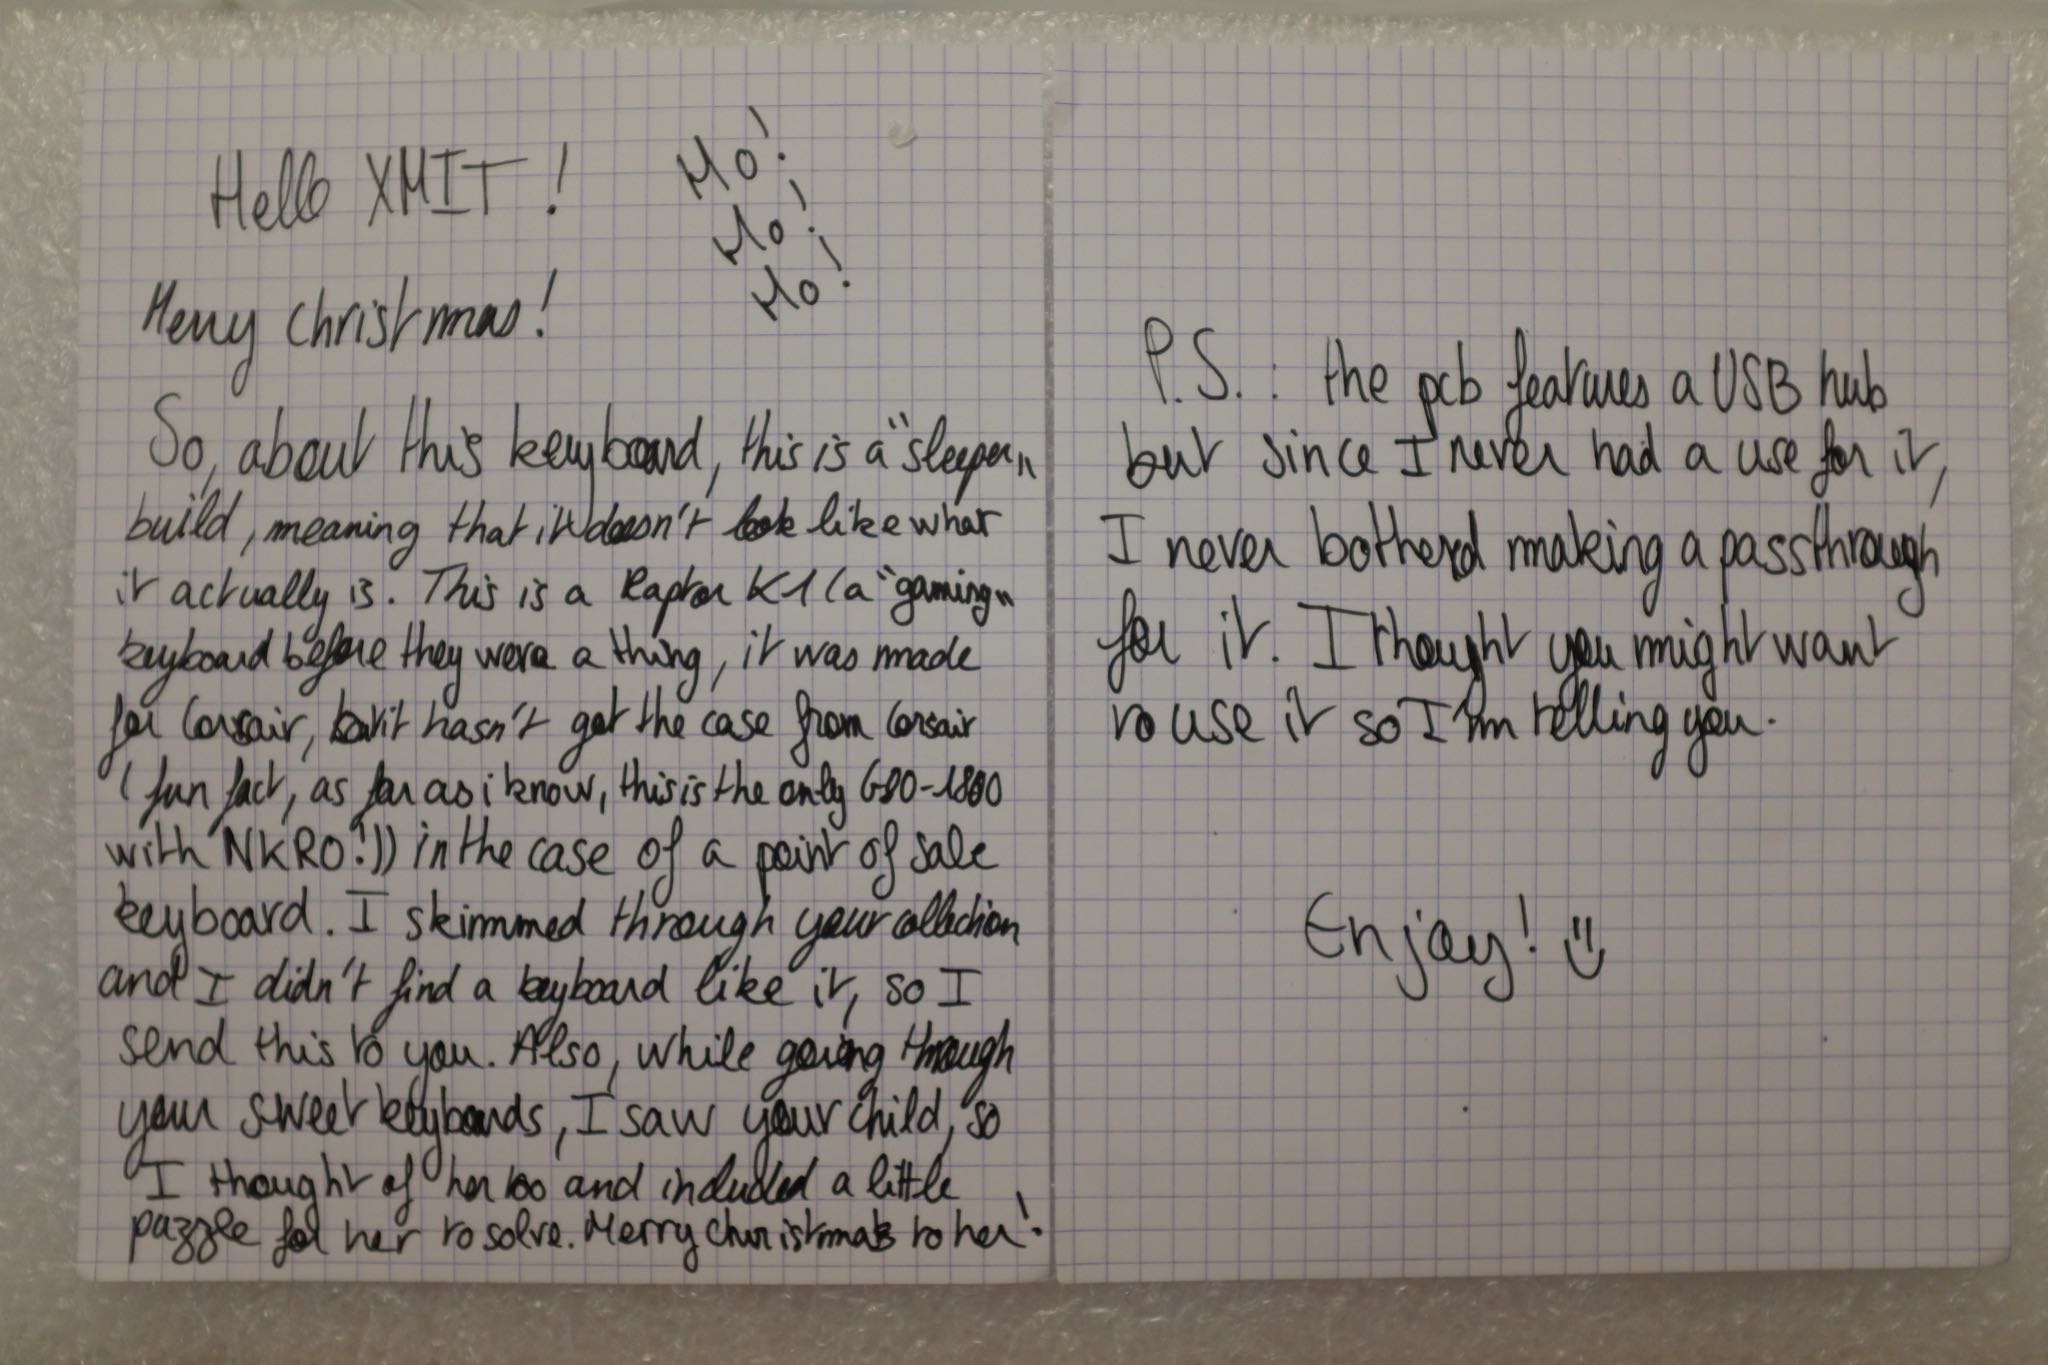 Hello XMIT !
Ho!
Ho!
Ho!
Merry christmas!
So, about this keyboard, this is a "sleeper"
build, meaning that it doesn't look like what
it actually is. This is a Raptor K1 (a "gaming"
keyboard before they were a thing, it was made
for Corsair, but it hasn't got the case from Corsair
(fun fact, as far as i know, this is the only G80-1800
with NKRO!)) in the case of a point of sale
keyboard. I skimmed through your collection
and I didn't find a keyboard like it, so I
send this to you. Also, while going through
your sweet keyboards, I saw your child, so
I thought of her too and included a little
puzzle for her to solve. Merry Christmas to her!
P.S. : the pcb features a USB hub
but since I never had a use for it,
I never botherd making a passthrough
for it. I thought you might want
to use it so I'm telling you.
Enjoy! =)